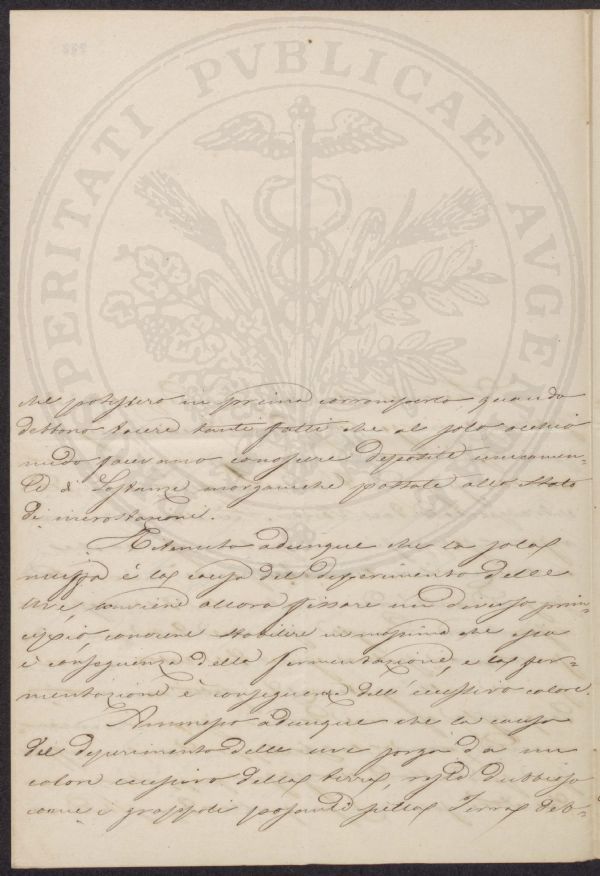 PROSPERITATI PVBLICAE AVGENDAE
che potessero in prima corromperlo, quando
debbono tacere tanti fatti che al solo occhio
nudo facevano conoscere depositi unicamen-
te di sostanze inorganiche passate allo stato
di incrostazioni.
Ritenuto adunque che la sola
muffa è la causa del deperimento delle
uve, conviene allora fissare un diverso prin-
cipio, conviene stabilire in massima che essa
è conseguenza della fermentazione, e la fer-
mentazione è conseguenza dell'eccessivo calore.
Ammesso adunque che la causa
del deperimento delle uve sorga da un
calore eccessivo della terra, resta dubbioso
come i grappoli posando sulla Terra deb-